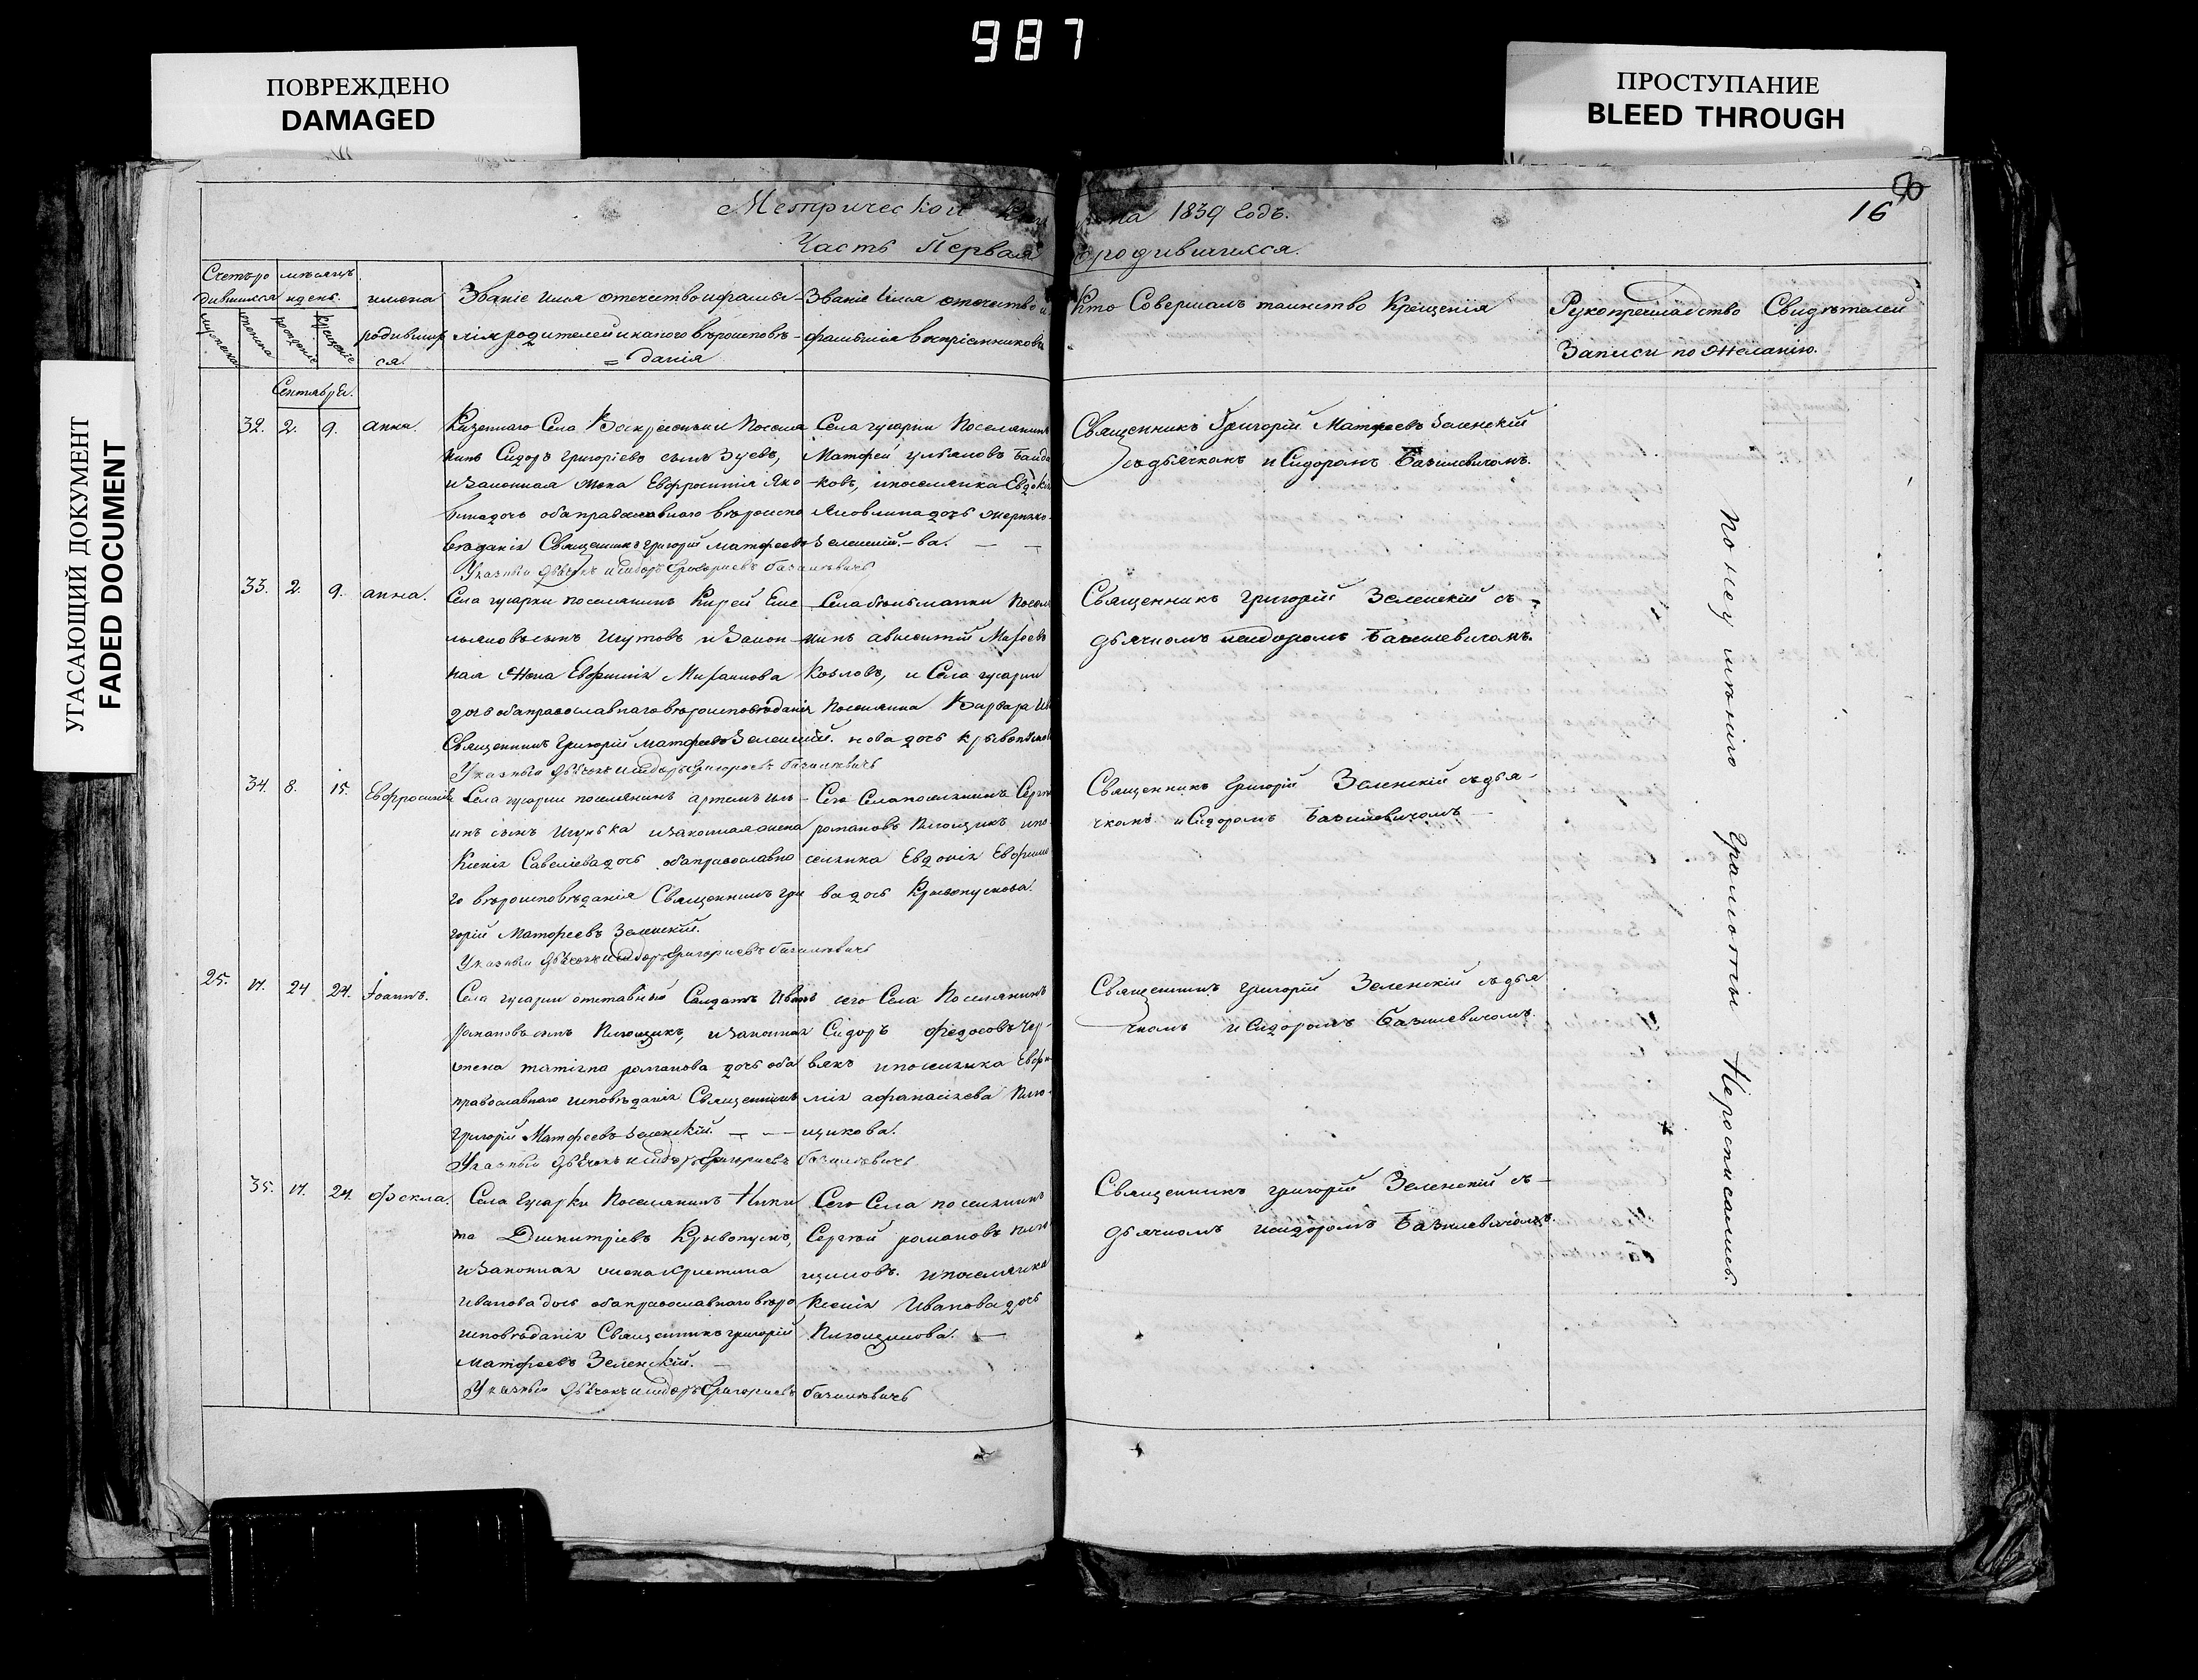 987
ПОВРЕЖДЕНО
DAMAGED
ПРОСТУПАНИЕ
BLEED THROUGH
УГАСАЮЩИЙ ДОКУМЕНТ
FADED DOCUMENT
Метрической на 1839 Годъ.
16
Часть Первая о родившихся.
Счетъ ро
дившихся
мѣсяцъ
и день.
мужеска
женска
рожденіе
крещеніе
имена
родивших
ся.
Званіе имя отечество и фами-
лія родителей и какого вѣроиспов-
=данія
Званіе имя отечество и
фамилія воспріемниковъ
Кто Совершалъ таинство Крещенія
Рукоприкладство Свидѣтелей
Записи по желанію.
Сентября.
32. 2. 9. анна.
Казеннаго Села Воскресенки Поселя
нинъ Сидоръ григоріевъ сынъ Зуевъ,
и законная жена Евфросинія Яко
влина дочь оба православнаго вѣроиспо
вѣданія Священникъ григорій матфеевъ Зеленскій.
Указный Дьячокъ исидоръ Григориевъ базилевичъ
Села гусарки Поселянинъ
Матфей ульяновъ Байда
ковъ, и поселянка Евдокія
Яковлина дочь
ва.
Священникъ Григорій Матфеевъ Зеленскій
съ дьячкомъ исидоромъ Базилевичомъ.
33. 2. 9. анна.
Села гусарки поселянинъ Кирей Еме
льяновъ сынъ Шутовъ и Закон
ная Жена Евфимія
дочь оба православнаго вѣроисповѣданія
Священникъ Григорій матфеевъ Зеленскій.
Указный Дьячокъ исидоръ Григориевъ базилевичъ
Козловъ, и Села гусарки
Поселянка Варвара Ива
нова дочь
Священникъ григорій Зеленскій съ
дьячкомъ исидоромъ Базилевичомъ.
34. 8. 15. Евфросинія
Села гусарки поселянинъ артемъ иль
инъ сынъ и законная жена
Ксенія Савеліева дочь оба православна
го вѣроисповѣданія Священникъ гри
горій Матфеевъ Зеленскій.
Указный Дьячокъ исидоръ Григориевъ базилевичъ
Сего Села поселянинъ Сергѣй
романовъ Плющикъ и по
селянка Евдокія Евфимо
ва дочь Крывопускова.
Священникъ григорій Зеленскій съ дья-
чкомъ исидоромъ Базилевичомъ
25. 17. 24 24. Іоаннъ.
Села гусарки отставный Салдатъ Иванъ
романовъ сынъ Плющикъ, и законная
жена татіана романова дочь оба
православнаго исповѣданія Священникъ
Григорій Матфеевъ Зеленскій.
Указный Дьячокъ исидоръ Григориевъ базилевичъ
сего Села Поселянинъ
Сидоръ федосовъ Чер-
вякъ и поселянка Евфи
мія афанасіева Плю-
щикова.
Священникъ григорій Зеленскій съ дья
чкомъ исидоромъ Базилевичомъ.
35. 17. 24. Фекла.
Села Гусарки Поселянинъ Ники
та Димитріевъ Крывопускъ,
и законная жена кристина
Иванова дочь оба православнаго вѣро
исповѣданія Священникъ григорій
матфеевъ Зеленскій.
Указный Дьячокъ исидоръ Григориевъ базилевичъ
Сего Села поселянинъ
Сергѣй романовъ плю
щиковъ. и поселянка
Ксенія Иванова дочь
Плющикова.
Священникъ григорій Зеленскій съ-
дьячкомъ исидоромъ Базилевичомъ.
По неумѣнію Грамоты Неросписались.